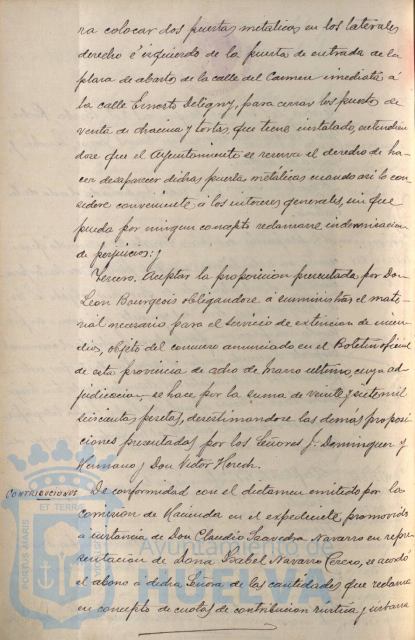 ra colocar dos puertas metálicas en los laterales
derecho é izquierdo de la puerta de entrada de la
plaza de abastos de la calle del Carmen inmediata á
la calle Ernesto Deligny, para cerrar los puestos de
venta de chacina y tortas, que tiene instalado, entendien
dose que el Ayuntamiento se reserva el derecho de ha-
cer desaparecer dichas puertas metálicas cuando así lo con
sidere conveniente á los intereses generales, sin que
pueda por ningun concepto reclamarse indemnizacion
de perjuicios;
Tercero. Aceptar la proposicion presentada por Don
Leon Bourgeois obligandose á suministrar el mate-
rial necesario para el servicio de extincion de incen-
dios, objeto del concurso anunciado en el Boletin oficial
de esta provincia de ocho de Marzo último, cuya ad-
judicacion se hace por la suma de veinte y siete mil
seiscientas pesetas, desestimandose las demás proposi
ciones presentadas por los Señores J. Dominguez y
Hermano y Don Victor
CONTRIBUCIONES De conformidad con el dictamen emitido por la
comision de Hacienda en el expediente promovido
á instancia de Don Claudio Saavedra Navarro en repre
sentacion de Doña Isabel Navarro Perero, se acordó
el abono á dicha Señora de las cantidades que reclama
en concepto de cuotas de contribucion rústica y urbana
PORTUS MARIS ET TERR
Ayuntamiento de
HUELVA